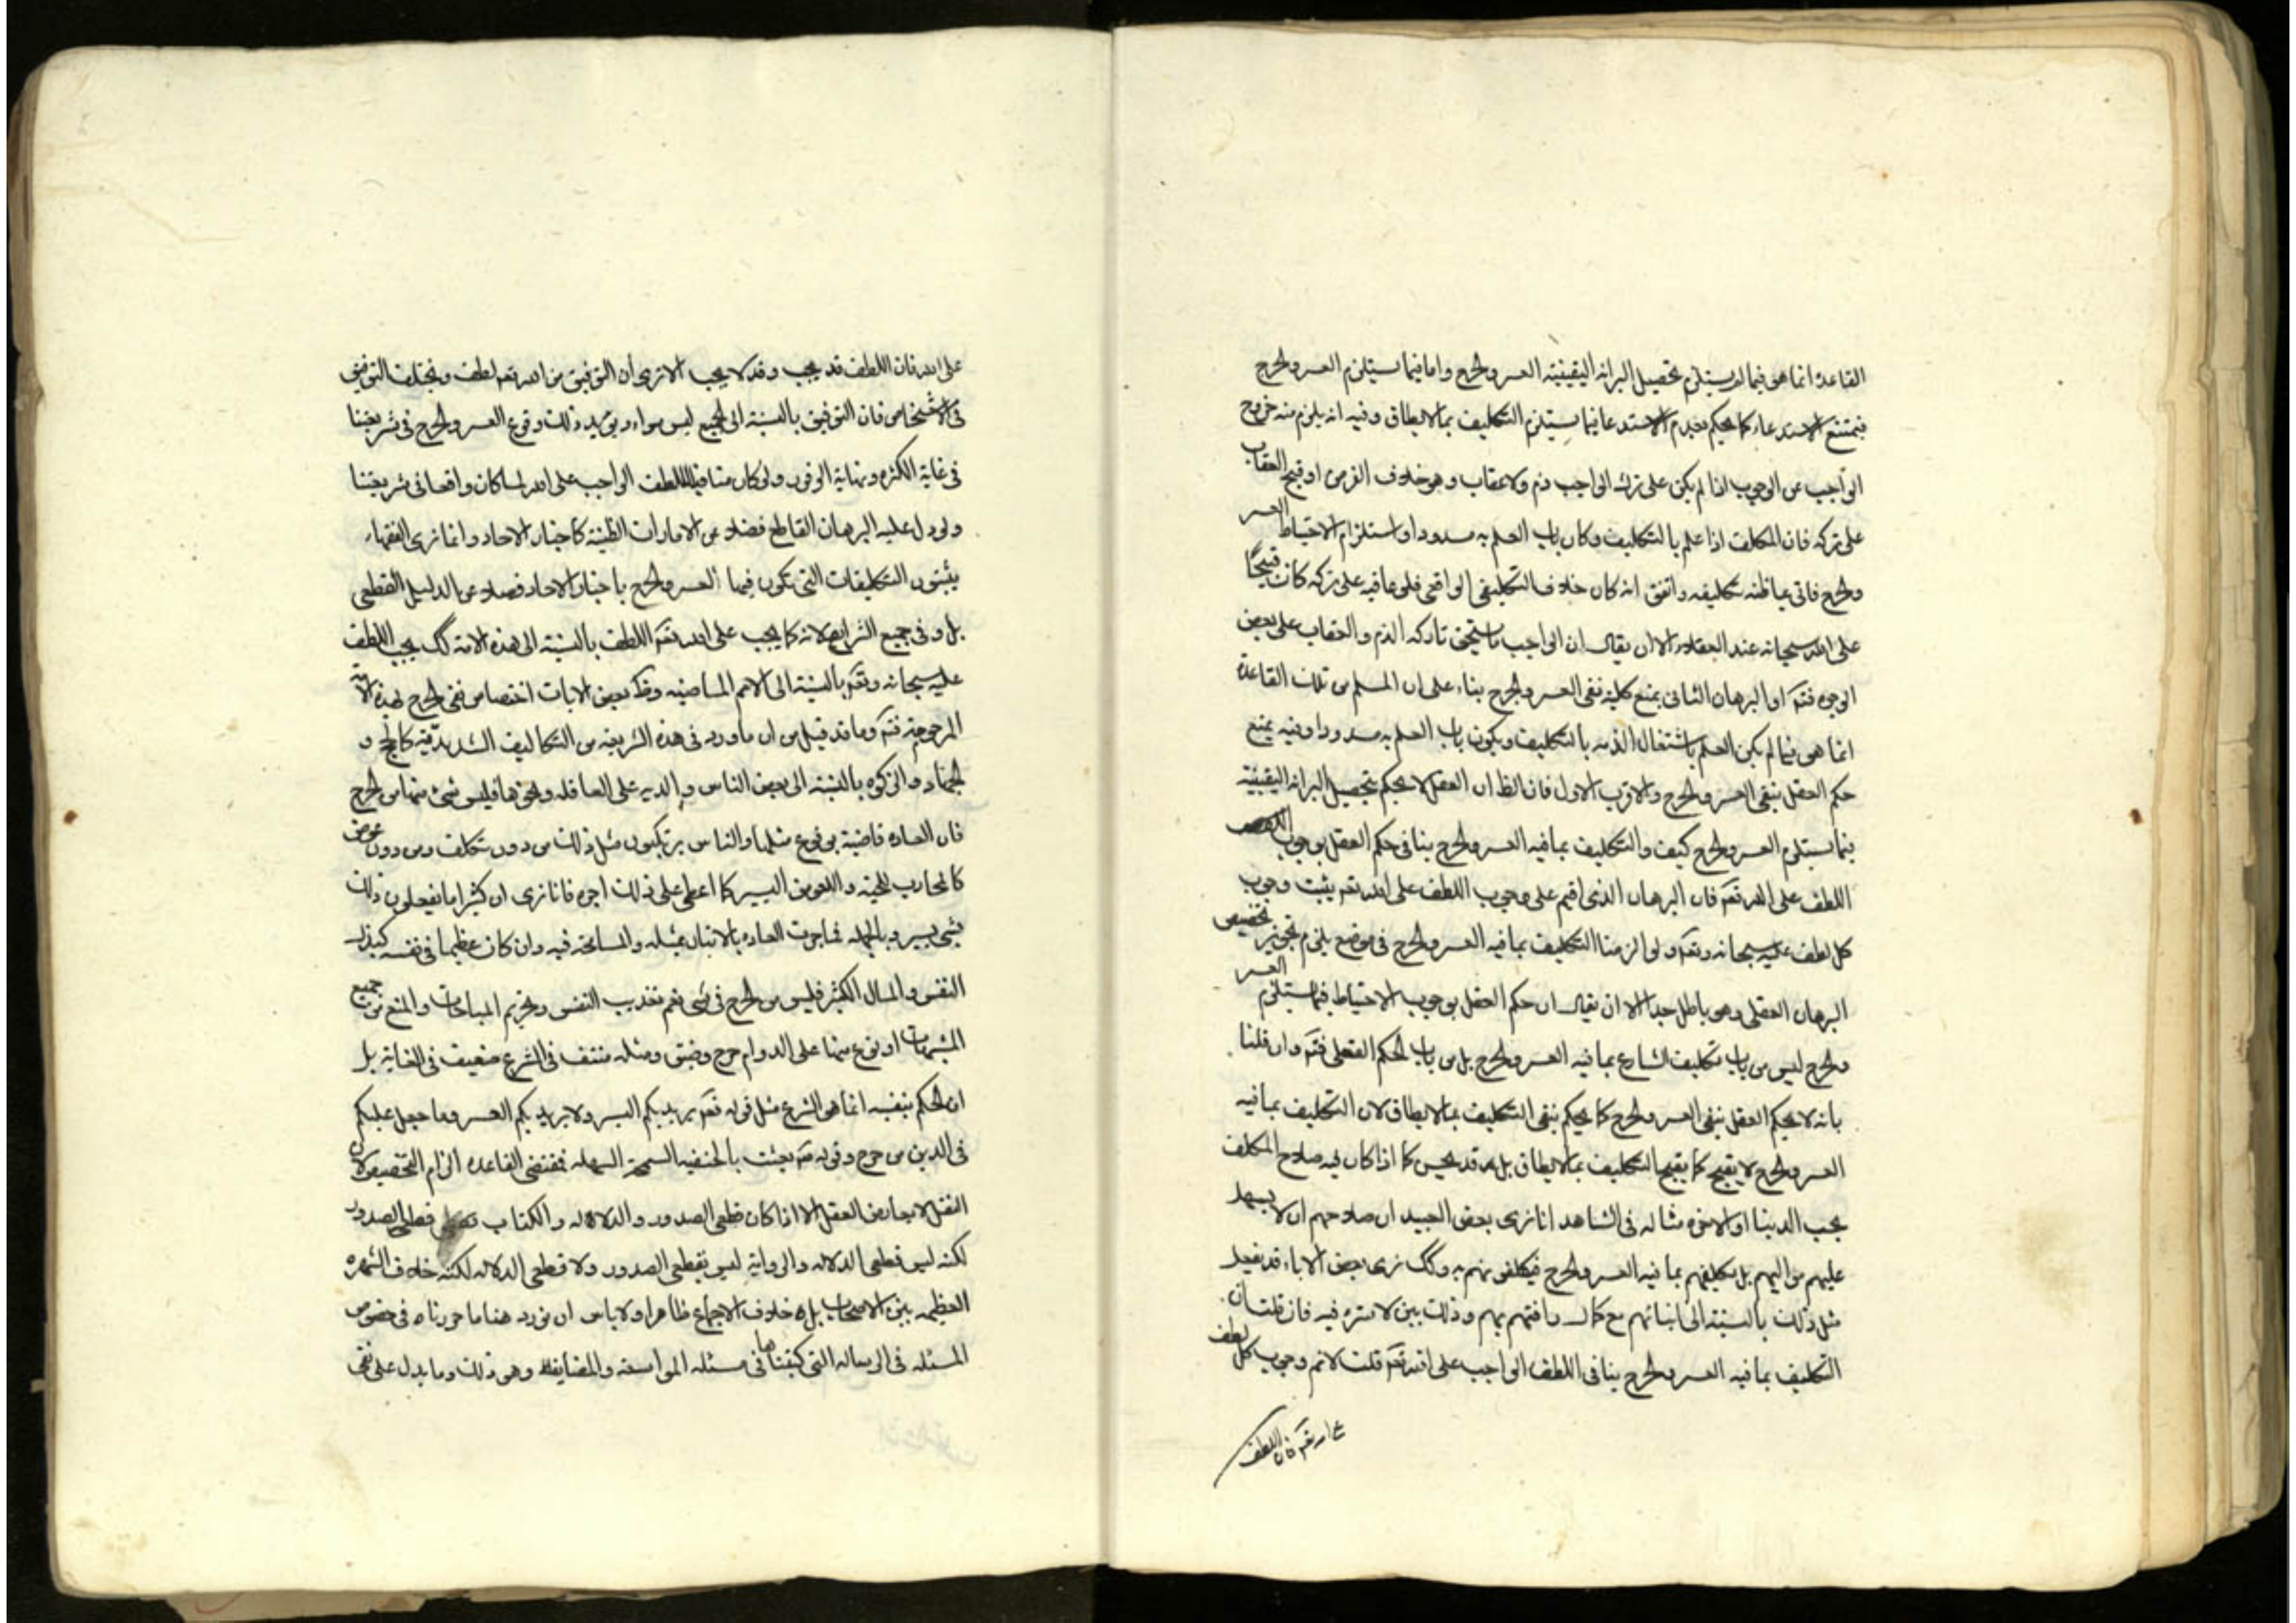 القاعدة انما هو فيما لم يستلزم تحصيل البرائة اليقينية العسر والحرج واما فيما يستلزم العسر والحرج
فيمتنع الاستدعاء كما يحكم بعدم الاستدعا فيما يستلزم التكليف بما لا يطاق وفيه انه يلزم منه خروج
الواجب عن الوجوب اذا لم يكن على ترك الواجب ذم ولا عقاب وهو خلاف الفرض او قبح العقاب
على تركه فان المكلف اذا علم بالتكليف وكان باب العلم به مسدودا واستلزام الاحتياط العسر
والحرج فاتى بما ظنه تكليفه واتفق انه كان خلاف التكليف الواقعى فلو عاقبه على تركه كان قبيحًا
على الله سبحانه عند العقلاء الا ان يقال ان الواجب ما يستحق تاركه الذم والعقاب على بعض
الوجوه فتم او البرهان الثانى بمنع كلية نفى العسر والحرج بناء على ان المسلم من تلك القاعدة
انما هو فيما لم يكن العلم باشتغال الذمه بالتكليف ويكون باب العلم به مسدودا وفيه يمنع
حكم العقل بنفى العسر والحرج والاقرب الاول فان الظ ان العقل لا يحكم بتحصيل البرائة اليقينية
فيما يستلزم العسر والحرج كيف والتكليف بما فيه العسر والحرج ينافى حكم العقل بوجوب
اللطف على الله تعم فان البرهان الذى اقيم على وجوب اللطف على الله تعم يثبت وجوب
كل لطف عليه سبحانه وتعم ولو الزمنا التكليف بما فيه العسر والحرج فى موضع يلزم تجويز تخصيص
البرهان العقلى وهو باطل جدا الا ان يقال ان حكم العقل بوجوب الاحتياط فيما يستلزم العسر
والحرج ليس من باب تكليف الشارع بما فيه العسر والحرج بل من باب الحكم العقلى فتم وان قلنا
بانه لا يحكم العقل بنفى العسر والحرج كما يحكم بنفى التكليف بما لا يطاق لان التكليف بما فيه
العسر والحرج لا يقبح كما يقبح التكليف بما لا يطاق بل قد يحسن كما اذا كان فيه صلاح المكلف
بحسب الدنيا او الاخره مثاله فى الشاهد انا نرى بعض العبيد ان صلاحهم ان لا يسهل
عليهم مواليهم بل تكليفهم بما فيه العسر والحرج فيكلفونهم به وكك نرى بعض الاباء قد يفعل
مثل ذلك بالنسبة الى ابنائهم مع كمال رافتهم بهم وذلك بين لا ستره فيه فان قلت ان
التكليف بما فيه العسر والحرج ينافى اللطف الواجب على الله تعم قلت لا نم وجوب كل لطف
على الله تعم فان اللطف
على الله فان اللطف قد يجب وقد لا يجب الا ترى ان التوفيق من الله تعم لطف ويختلف التوفيق
فى الاشخاص فان التوفيق بالنسبة الى الجميع ليس سواء ويؤيد ذلك وقوع العسر والحرج فى شريعتنا
فى غاية الكثره ونهاية الوفور ولو كان منافيا للطف الواجب على الله لما كان واقعا فى شريعتنا
ولو دل عليه البرهان القاطع فضلا عن الامارات الظنية كاخبار الاحاد وانما نرى الفقهاء
يثبتون التكليفات التى تكون فيها العسر والحرج باخبار الاحاد فضلا عن الدليل القطعى
بل وفى جميع الشرايع لانه كما يجب على الله تعم اللطف بالنسبة الى هذه الامة كك يجب اللطف
عليه سبحانه وتعم بالنسبة الى الامم الماضيه وظ بعض الايات اختصاص نفى الحرج بهذه الامة
المرحومة فتم وما قد قيل من ان ما ورد فى هذه الشريعة من التكاليف الشديدة كالحج و
الجهاد والزكوة بالنسبة الى بعض الناس والديه على العاقله ونحوها فليس شئ منها من الحرج
فان العاده قاضية بوقوع مثلها والناس يرتكبون مثل ذلك من دون تكلف ومن دون عوض
كالمحارب للحمية والعوض اليسير كما اعطى على ذلك اجره فانا نرى ان كثيرا ما يفعلون ذلك
بشئ يسير وبالجمله فما جرت العاده بالاتيان بمثله والمسامحة فيه وان كان عظيما فى نفسه كبذل
النفس والمال الكثير فليس من الحرج فى شئ نعم تعذيب النفس وتحريم المباحات والمنع من جميع
المشتهيات او نوع منها على الدوام حرج وضيق ومثله منتف فى الشرع ضعيف فى الغاية بل
ان الحكم بنفيه انما هو الشرع مثل قوله تعم يريد بكم اليسر ولا يريد بكم العسر وما جعل عليكم
فى الدين من حرج وقوله بعثت بالحنفيه السمحة السهله فمقتضى القاعده الزام التخصيص لان
النقل لا يعارض العقل الا اذا كان قطعى الصدور والدلاله والكتاب قطعى الصدور
لكنه ليس قطعى الدلاله والرواية ليس بقطعى الصدور ولا قطعى الدلاله لكنه خلاف الشهره
العظيمه بين الاصحاب بل خلاف الاجماع ظاهرا ولا باس ان نورد هنا ما حررناه فى خصوص
المسئله فى الرساله التى كتبناها فى مسئله المواسعه والمضايقه وهو ذلك وما يدل على نفى